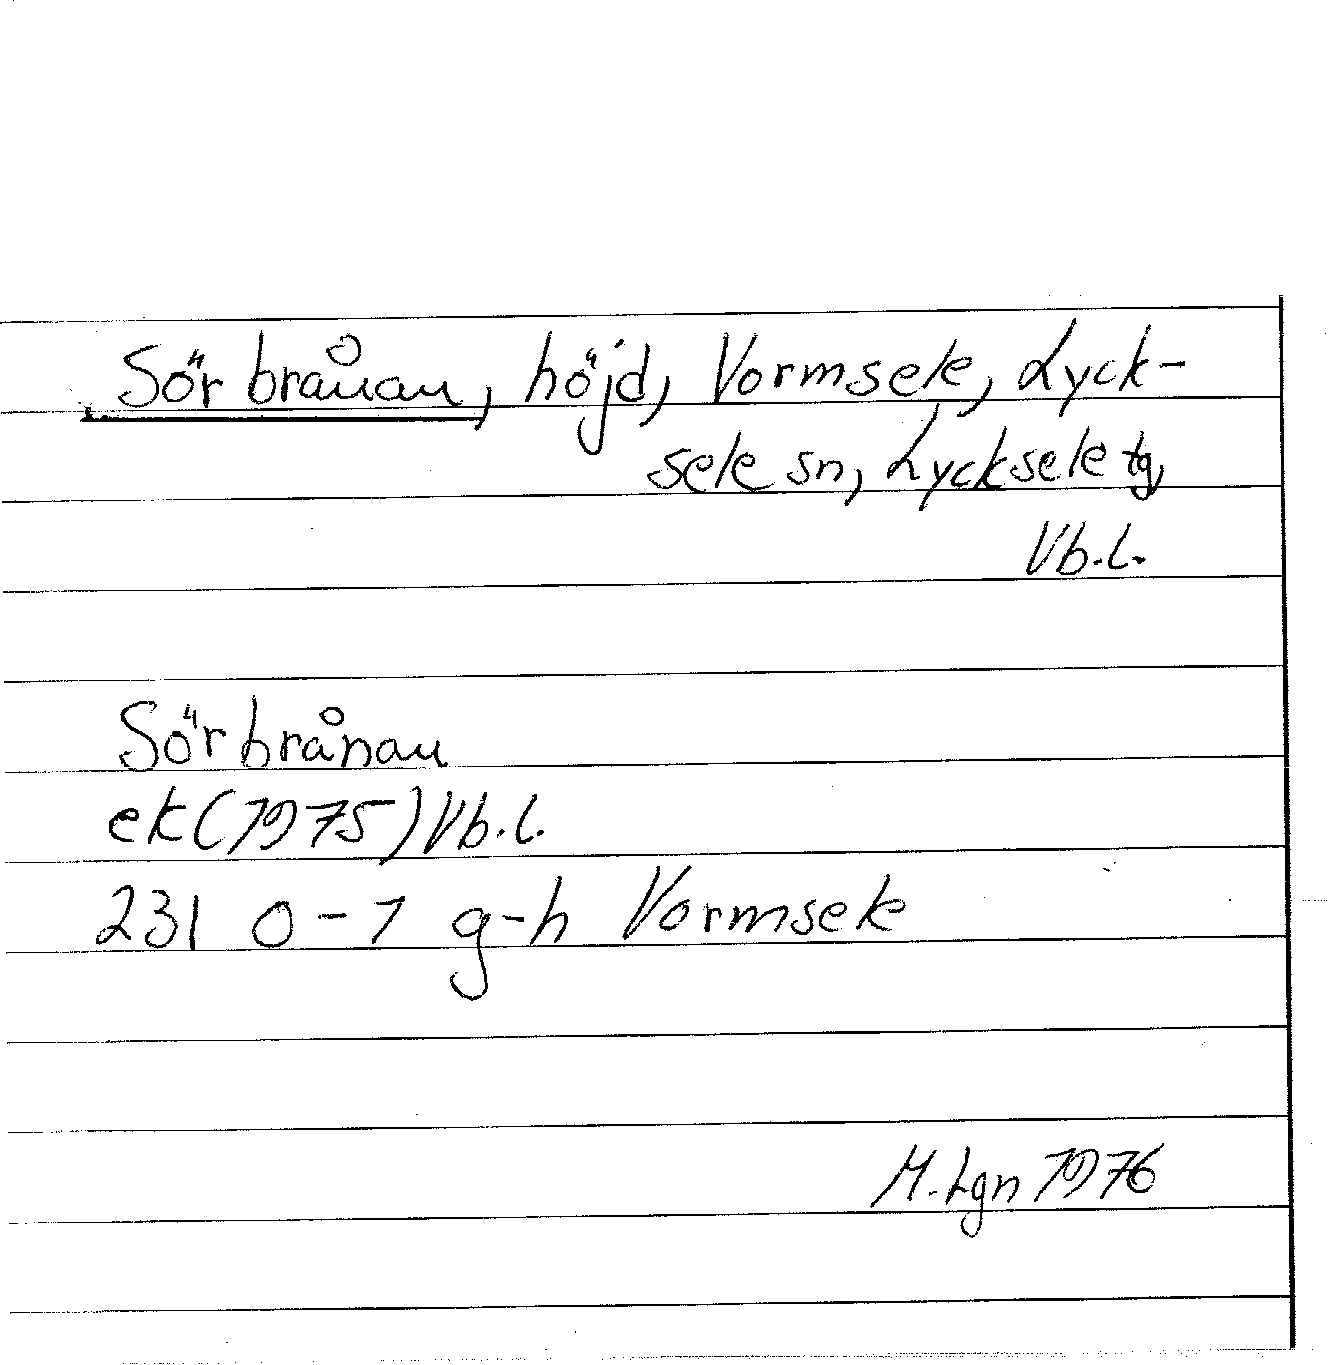 Sörbrånan, höjd, Vormsele, Lyck-
sele sn, Lycksele tg,
Vb.l.
Sörbrånan
ek(1975)Vb.l.
231 0-1 g-h Vormsele
M.Lgn 1976